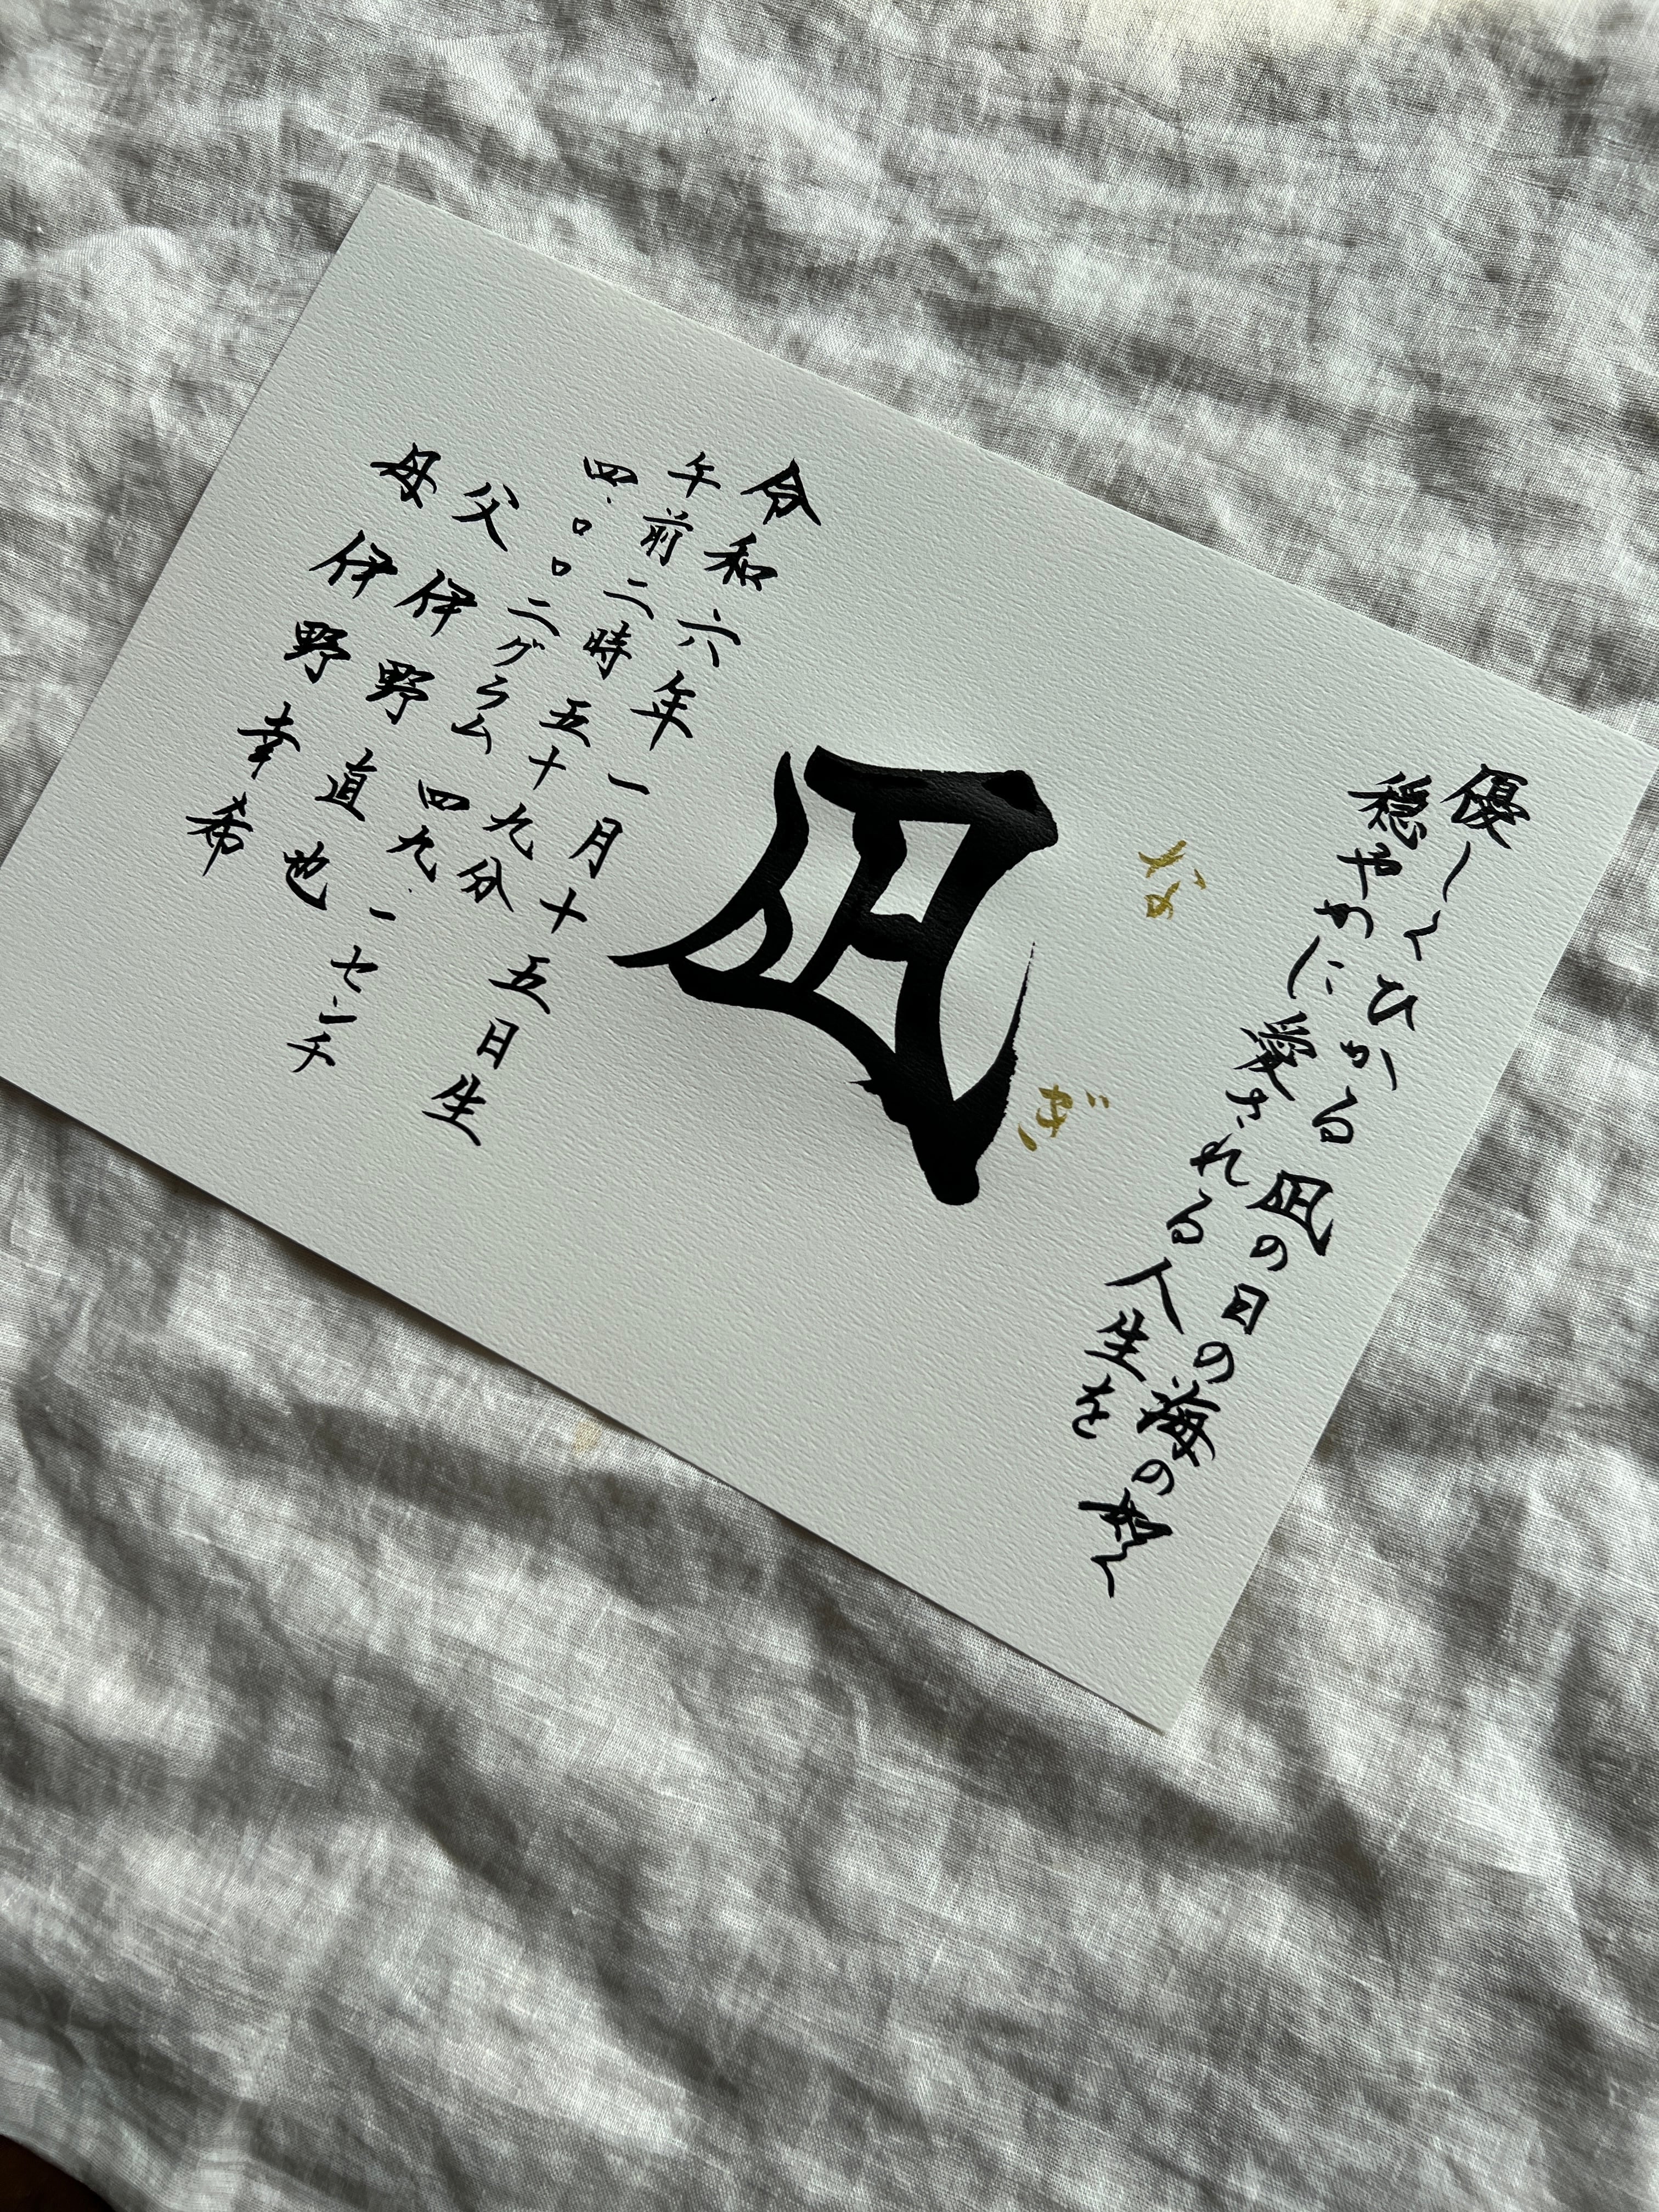 優しくひかる凪の日の海の如く
穏やかに愛される人生を
なぎ
凪
令和六年一月十五日生
午前二時五十九分
四.〇〇二グラム 四九.一センチ
父 伊野直也
母 伊野幸希